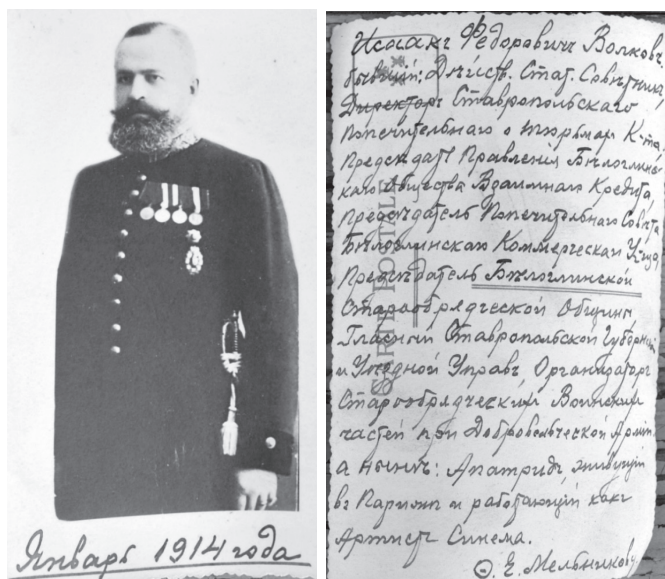 Январь 1914 года
Исаакъ Федоровичъ Волковъ.
бывший: Дѣйств. Стат. Совѣтника,
Директоръ Ставропольскаго
Попечительнаго о тюрьмах К-та,
Председат. Правления Бѣлоглинс-
каго Общества Взаимнаго Кредита,
Председатель Попечительнаго Совѣта
Бѣлоглинскаго Коммерческаго Уч-ща,
Председатель Бѣлоглинской
Старообрядческой Общины,
Гласный Ставропольской Губернск.
и Уездной Управъ, Организаторъ
Старообрядческий Воинских
частей при Добровольческой Армии,
а нынѣ: Апатридъ, живущий
въ Парижѣ и работающий какъ
Артистъ Синема.
Ѳ. Е. Мельникову
CARTE POSTALE